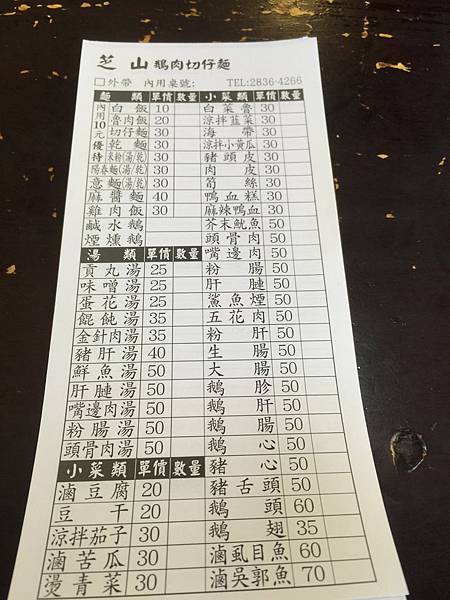 芝山鵝肉切仔麵
□外帶 內用桌號: TEL:2836-4266
麵類 單價 數量
內用10元優待
白飯 10
魯肉飯 30
切仔麵 30
乾麵 30
米粉(湯/乾) 30
陽春麵(湯/乾) 30
意麵(湯/乾) 30
麻醬麵 40
雞肉飯 30
鹹水鵝
煙燻鵝
湯類 單價 數量
貢丸湯 25
味噌湯 25
蛋花湯 25
餛飩湯 35
金針肉湯 35
豬肝湯 40
鮮魚湯 50
肝腱湯 50
嘴邊肉湯 50
粉腸湯 50
頭骨肉湯 50
小菜類 單價 數量
滷豆腐 20
豆干 20
涼拌茄子 30
滷苦瓜 30
燙青菜 30
小菜類 單價 數量
白菜魯 30
涼拌韮菜 30
海帶 30
涼拌小黃瓜 30
豬頭皮 30
肉皮 30
筍絲 30
鴨血糕 30
麻辣鴨血 30
芥末魷魚 50
頭骨肉 50
嘴邊肉 50
粉腸 50
肝腱 50
鯊魚煙 50
五花肉 50
粉肝 50
生腸 50
大腸 50
鵝胗 50
鵝肝 50
鵝腸 50
鵝心 50
豬心 50
豬舌頭 50
鵝頭 60
鵝翅 35
滷虱目魚 60
滷吳郭魚 70